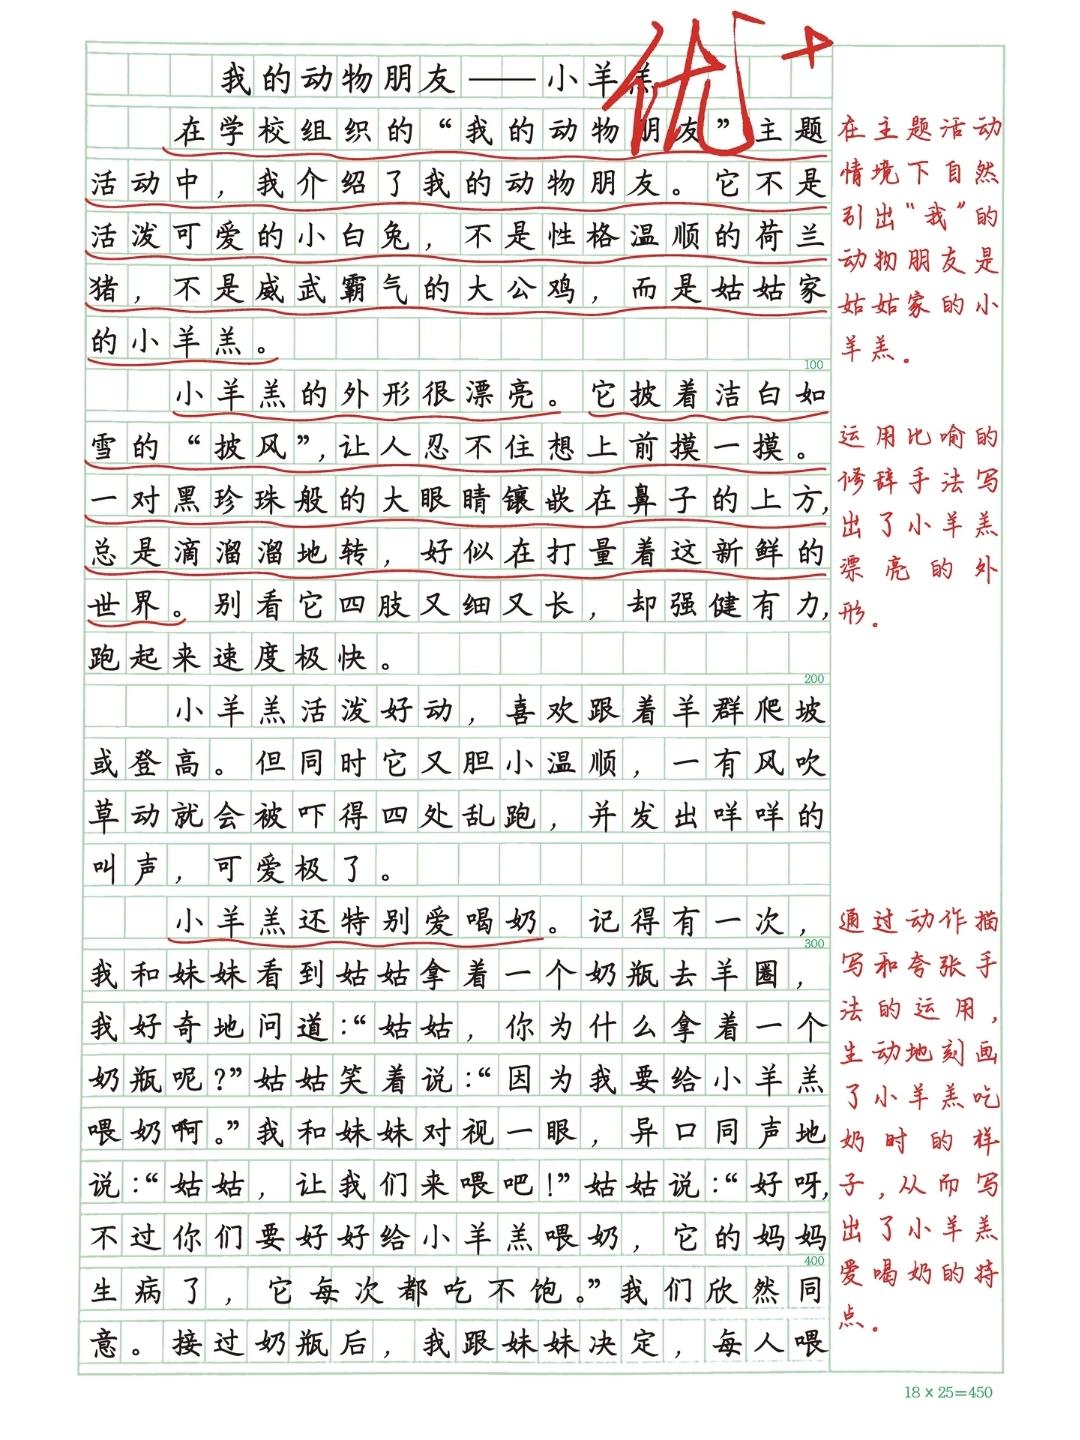 我的动物朋友——小羊羔
优+
在学校组织的“我的动物朋友”主题
活动中，我介绍了我的动物朋友。它不是
活泼可爱的小白兔，不是性格温顺的荷兰
猪，不是威武霸气的大公鸡，而是姑姑家
的小羊羔。
100
小羊羔的外形很漂亮。它披着洁白如
雪的“披风”，让人忍不住想上前摸一摸。
一对黑珍珠般的大眼睛镶嵌在鼻子的上方，
总是滴溜溜地转，好似在打量着这新鲜的
世界。别看它四肢又细又长，却强健有力，
跑起来速度极快。
200
小羊羔活泼好动，喜欢跟着羊群爬坡
或登高。但同时它又胆小温顺，一有风吹
草动就会被吓得四处乱跑，并发出咩咩的
叫声，可爱极了。
小羊羔还特别爱喝奶。记得有一次，
300
我和妹妹看到姑姑拿着一个奶瓶去羊圈，
我好奇地问道：“姑姑，你为什么拿着一个
奶瓶呢？”姑姑笑着说：“因为我要给小羊羔
喂奶啊。”我和妹妹对视一眼，异口同声地
说：“姑姑，让我们来喂吧！”姑姑说：“好呀，
不过你们要好好给小羊羔喂奶，它的妈妈
400
生病了，它每次都吃不饱。”我们欣然同
意。接过奶瓶后，我跟妹妹决定，每人喂
在主题活动
情境下自然
引出“我”的
动物朋友是
姑姑家的小
羊羔。
运用比喻的
修辞手法写
出了小羊羔
漂亮的外
形。
通过动作描
写和夸张手
法的运用，
生动地刻画
了小羊羔吃
奶时的样
子，从而写
出了小羊羔
爱喝奶的特
点。
18×25=450